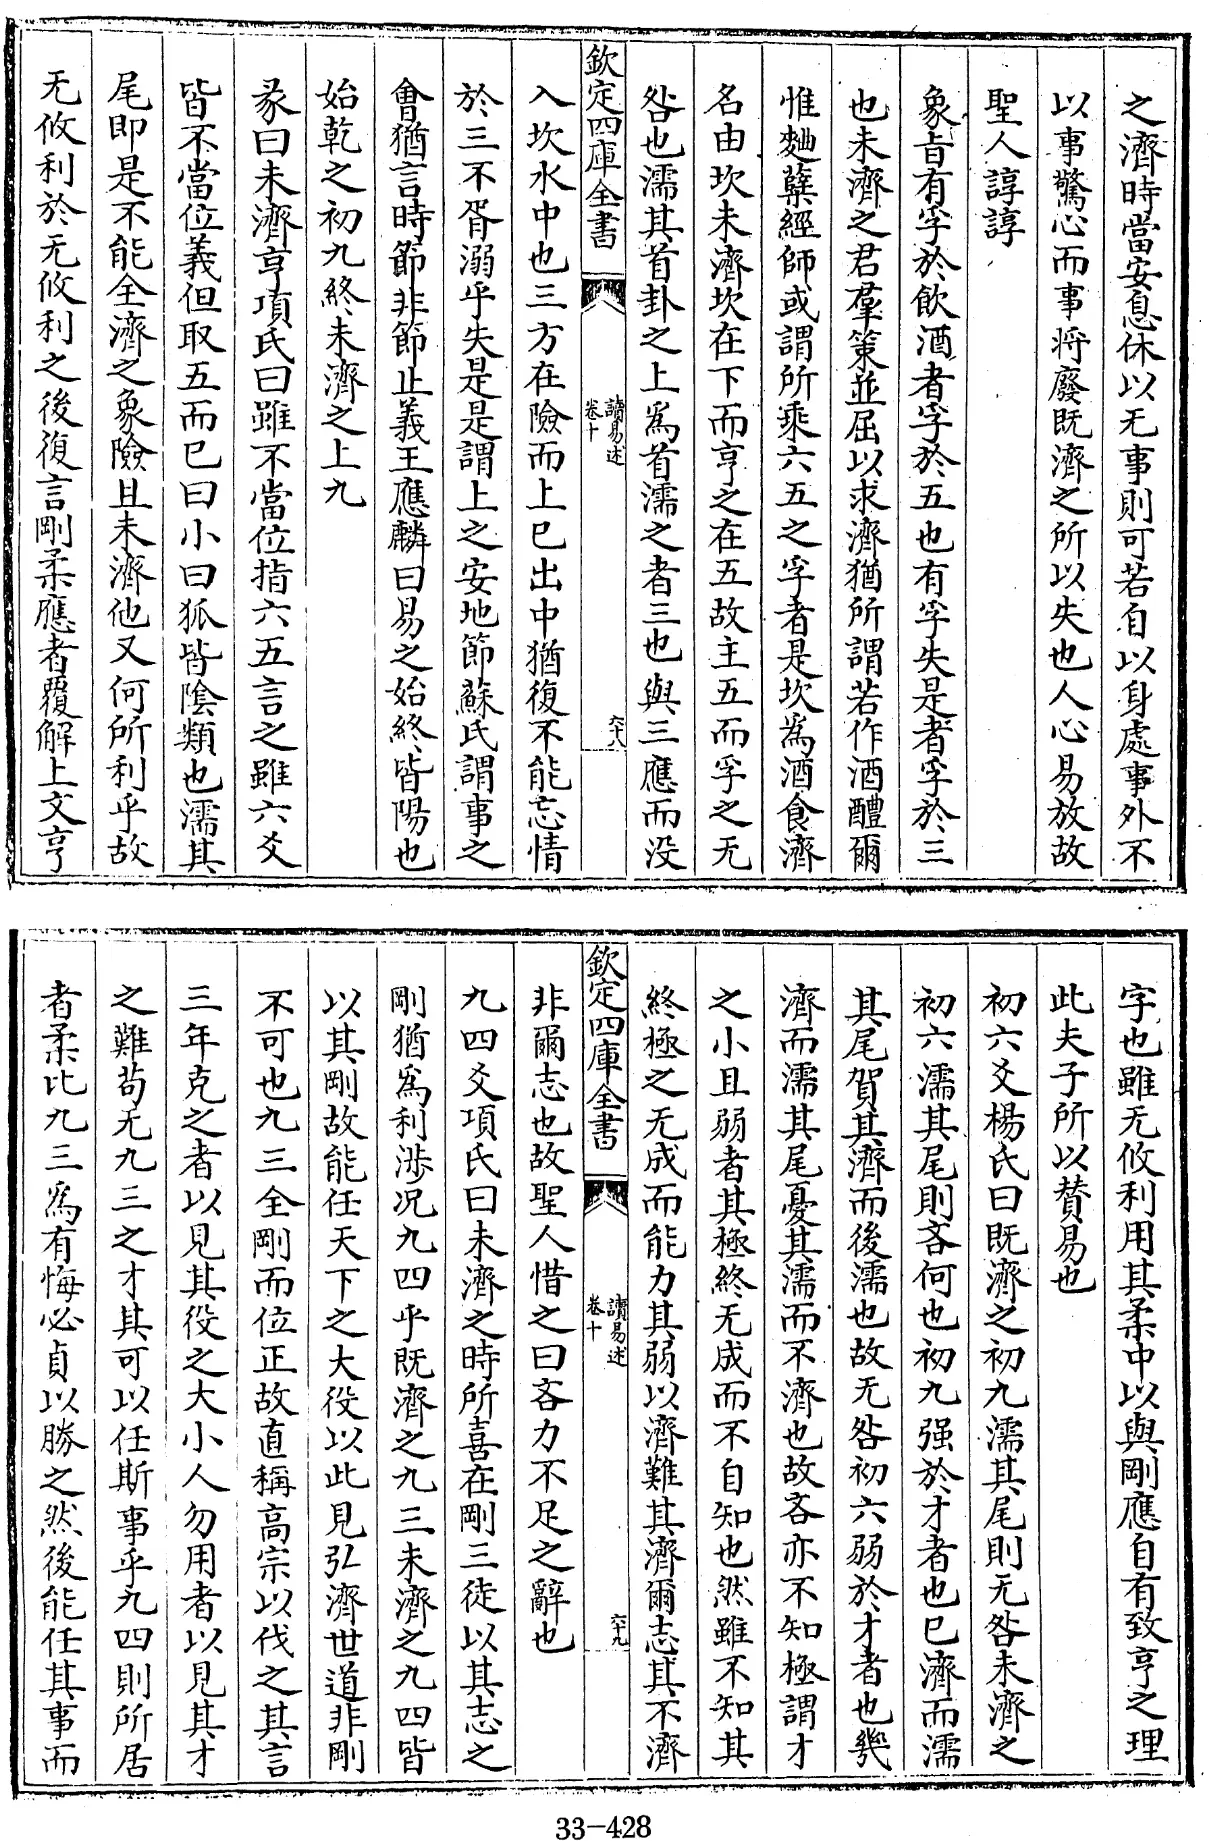 之濟時當安息休以无事則可若自以身處事外不
以事驚心而事將廢既濟之所以失也人心易放故
聖人諄諄
象旨有孚於飲酒者孚於五也有孚失是者孚於三
也未濟之君羣策並屈以求濟猶所謂若作酒醴爾
惟麯櫱經師或謂所乘六五之孚者是坎為酒食濟
名由坎未濟坎在下而亨之在五故主五而孚之无
咎也濡其首卦之上為首濡之者三也與三應而没
欽定四庫全書
讀易述
卷十
六十八
入坎水中也三方在險而上巳出中猶復不能忘情
於三不胥溺乎失是是謂上之安地節蘇氏謂事之
會猶言時節非節止義王應麟曰易之始終皆陽也
始乾之初九終未濟之上九
彖曰未濟亨項氏曰雖不當位指六五言之雖六爻
皆不當位義但取五而巳曰小曰狐皆陰類也濡其
尾即是不能全濟之象險且未濟他又何所利乎故
无攸利於无攸利之後復言剛柔應者覆解上文亨
字也雖无攸利用其柔中以與剛應自有致亨之理
此夫子所以賛易也
初六爻楊氏曰既濟之初九濡其尾則无咎未濟之
初六濡其尾則吝何也初九强於才者也巳濟而濡
其尾賀其濟而後濡也故无咎初六弱於才者也幾
濟而濡其尾憂其濡而不濟也故吝亦不知極謂才
之小且弱者其極終无成而不自知也然雖不知其
終極之无成而能力其弱以濟難其濟爾志其不濟
欽定四庫全書
讀易述
卷十
六十九
非爾志也故聖人惜之曰吝力不足之辭也
九四爻項氏曰未濟之時所喜在剛三徒以其志之
剛猶為利涉况九四乎既濟之九三未濟之九四皆
以其剛故能任天下之大役以此見弘濟世道非剛
不可也九三全剛而位正故直稱高宗以伐之其言
三年克之者以見其役之大小人勿用者以見其才
之難苟无九三之才其可以任斯事乎九四則所居
者柔比九三為有悔必貞以勝之然後能任其事而
33-428